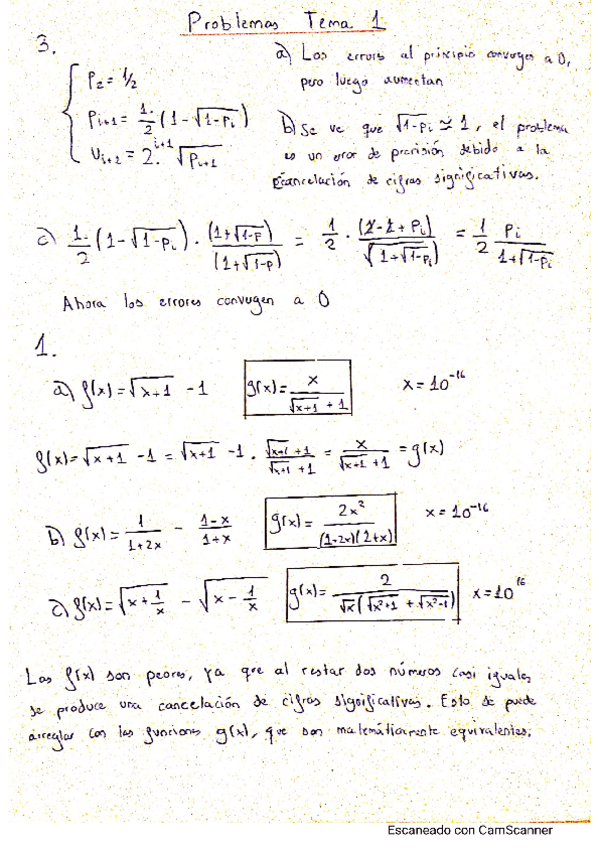 Problemas Tema 1
3.
P₂ = 1/2
Pᵢ₊₁ = 1/2 (1 - √(1-Pᵢ))
Uᵢ₊₂ = 2^(i+1) · √(Pᵢ₊₁)
a) Los errores al principio convergen a 0,
pero luego aumentan
b) Se ve que √(1-Pᵢ) ≃ 1, el problema
es un error de precisión debido a la
cancelación de cifras significativas.
c) 1/2 (1 - √(1-Pᵢ)) · (1+√(1-P))/(1+√(1-P)) = 1/2 · (1-1+Pᵢ)/(1+√(1-Pᵢ)) = 1/2 Pᵢ/(1+√(1-Pᵢ))
Ahora los errores convergen a 0
1.
a) f(x) = √(x+1) - 1 g(x) = x/(√(x+1) + 1) x = 10⁻¹⁶
f(x) = √(x+1) - 1 = √(x+1) - 1 · (√(x+1) + 1)/(√(x+1) + 1) = x/(√(x+1) + 1) = g(x)
b) f(x) = 1/(1+2x) - (1-x)/(1+x) g(x) = 2x²/((1+2x)(1+x)) x = 10⁻¹⁶
c) f(x) = √(x + 1/x) - √(x - 1/x) g(x) = 2/(√x (√(x²+1) + √(x²-1))) x = 10¹⁶
Las f(x) son peores, ya que al restar dos números casi iguales
se produce una cancelación de cifras significativas. Esto se puede
arreglar con las funciones g(x), que son matemáticamente equivalentes.
Escaneado con CamScanner